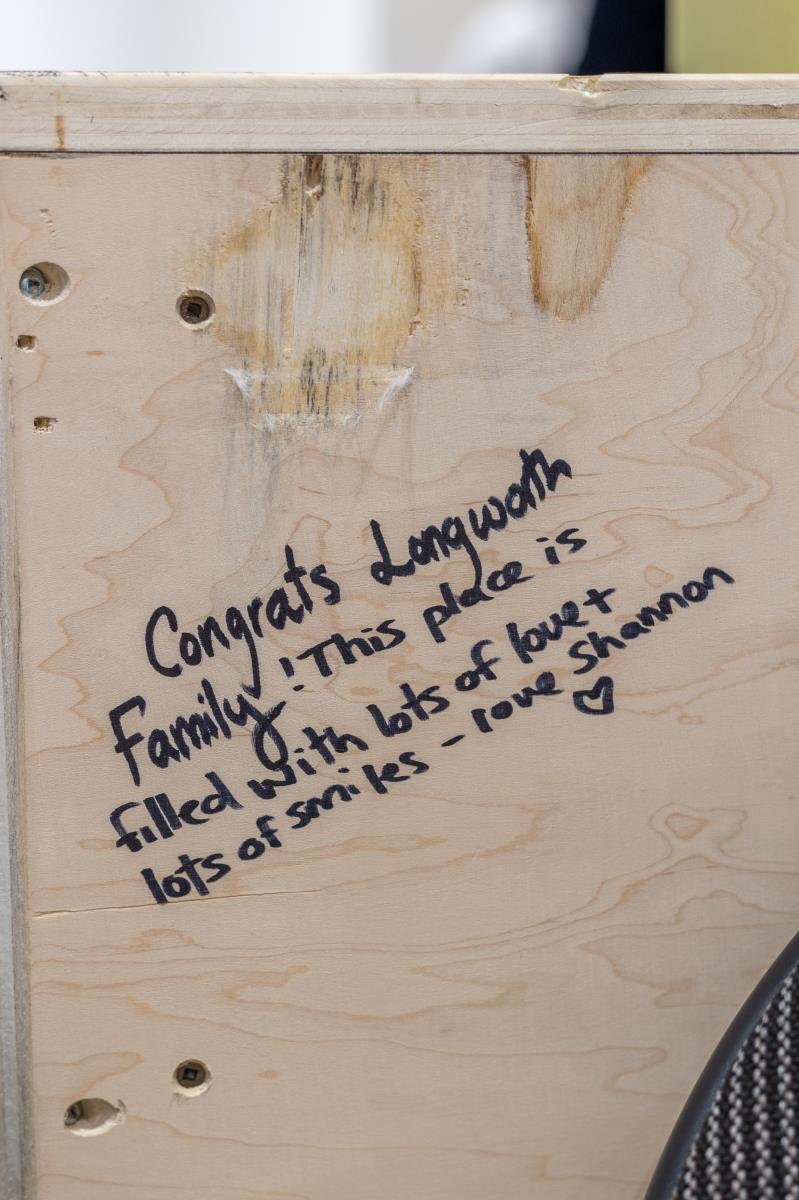 Congrats Longworth
Family! This place is
filled with lots of love +
lots of smiles - love Shannon
♡